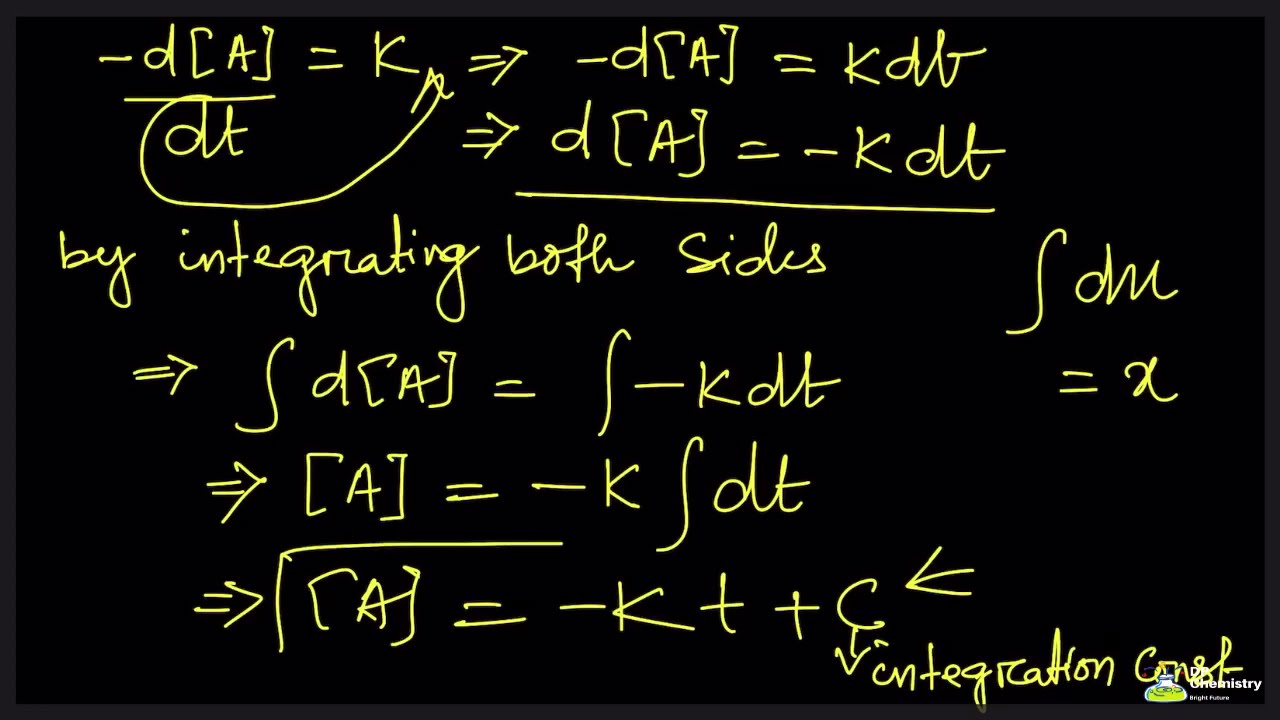 -d[A]/dt = K ⇒ -d[A] = Kdt
⇒ d[A] = -Kdt
by integrating both sides
∫dx
= x
⇒ ∫d[A] = ∫-Kdt
⇒ [A] = -K∫dt
⇒ [A] = -Kt + C ←
integration const
Chemistry
Bright Future